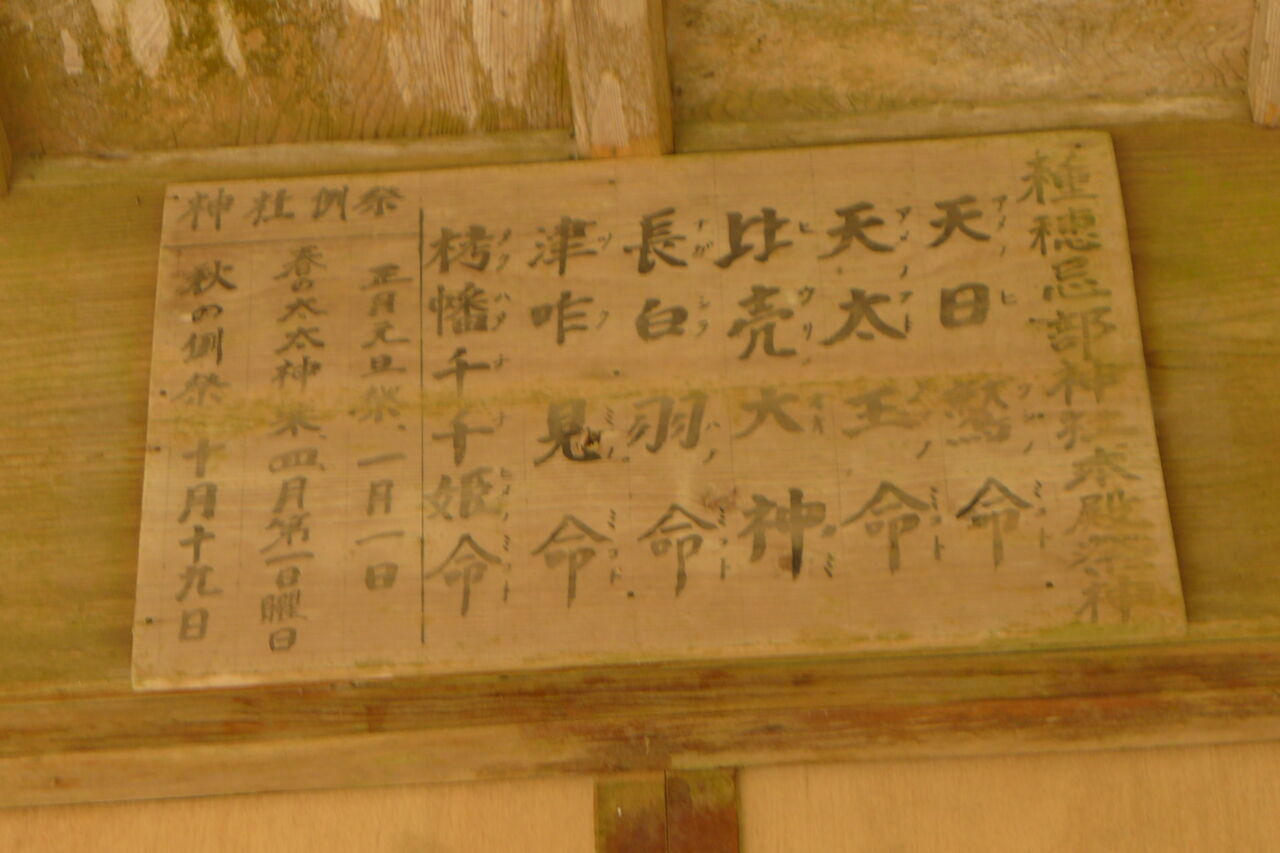 種穂忌部神社本殿祭神
天日鷲命
アメノヒワシノミコト
天太玉命
アメノフトタマノミコト
比売大神
ヒウリノオオカミ
長白羽命
ナガシラハノミコト
津咋見命
ツクミノミコト
栲幡千千姫命
タクハタチチヒメノミコト
神社例祭
正月元旦祭、一月一日
春の太太神楽、四月第一日曜日
秋の例祭 十月十九日